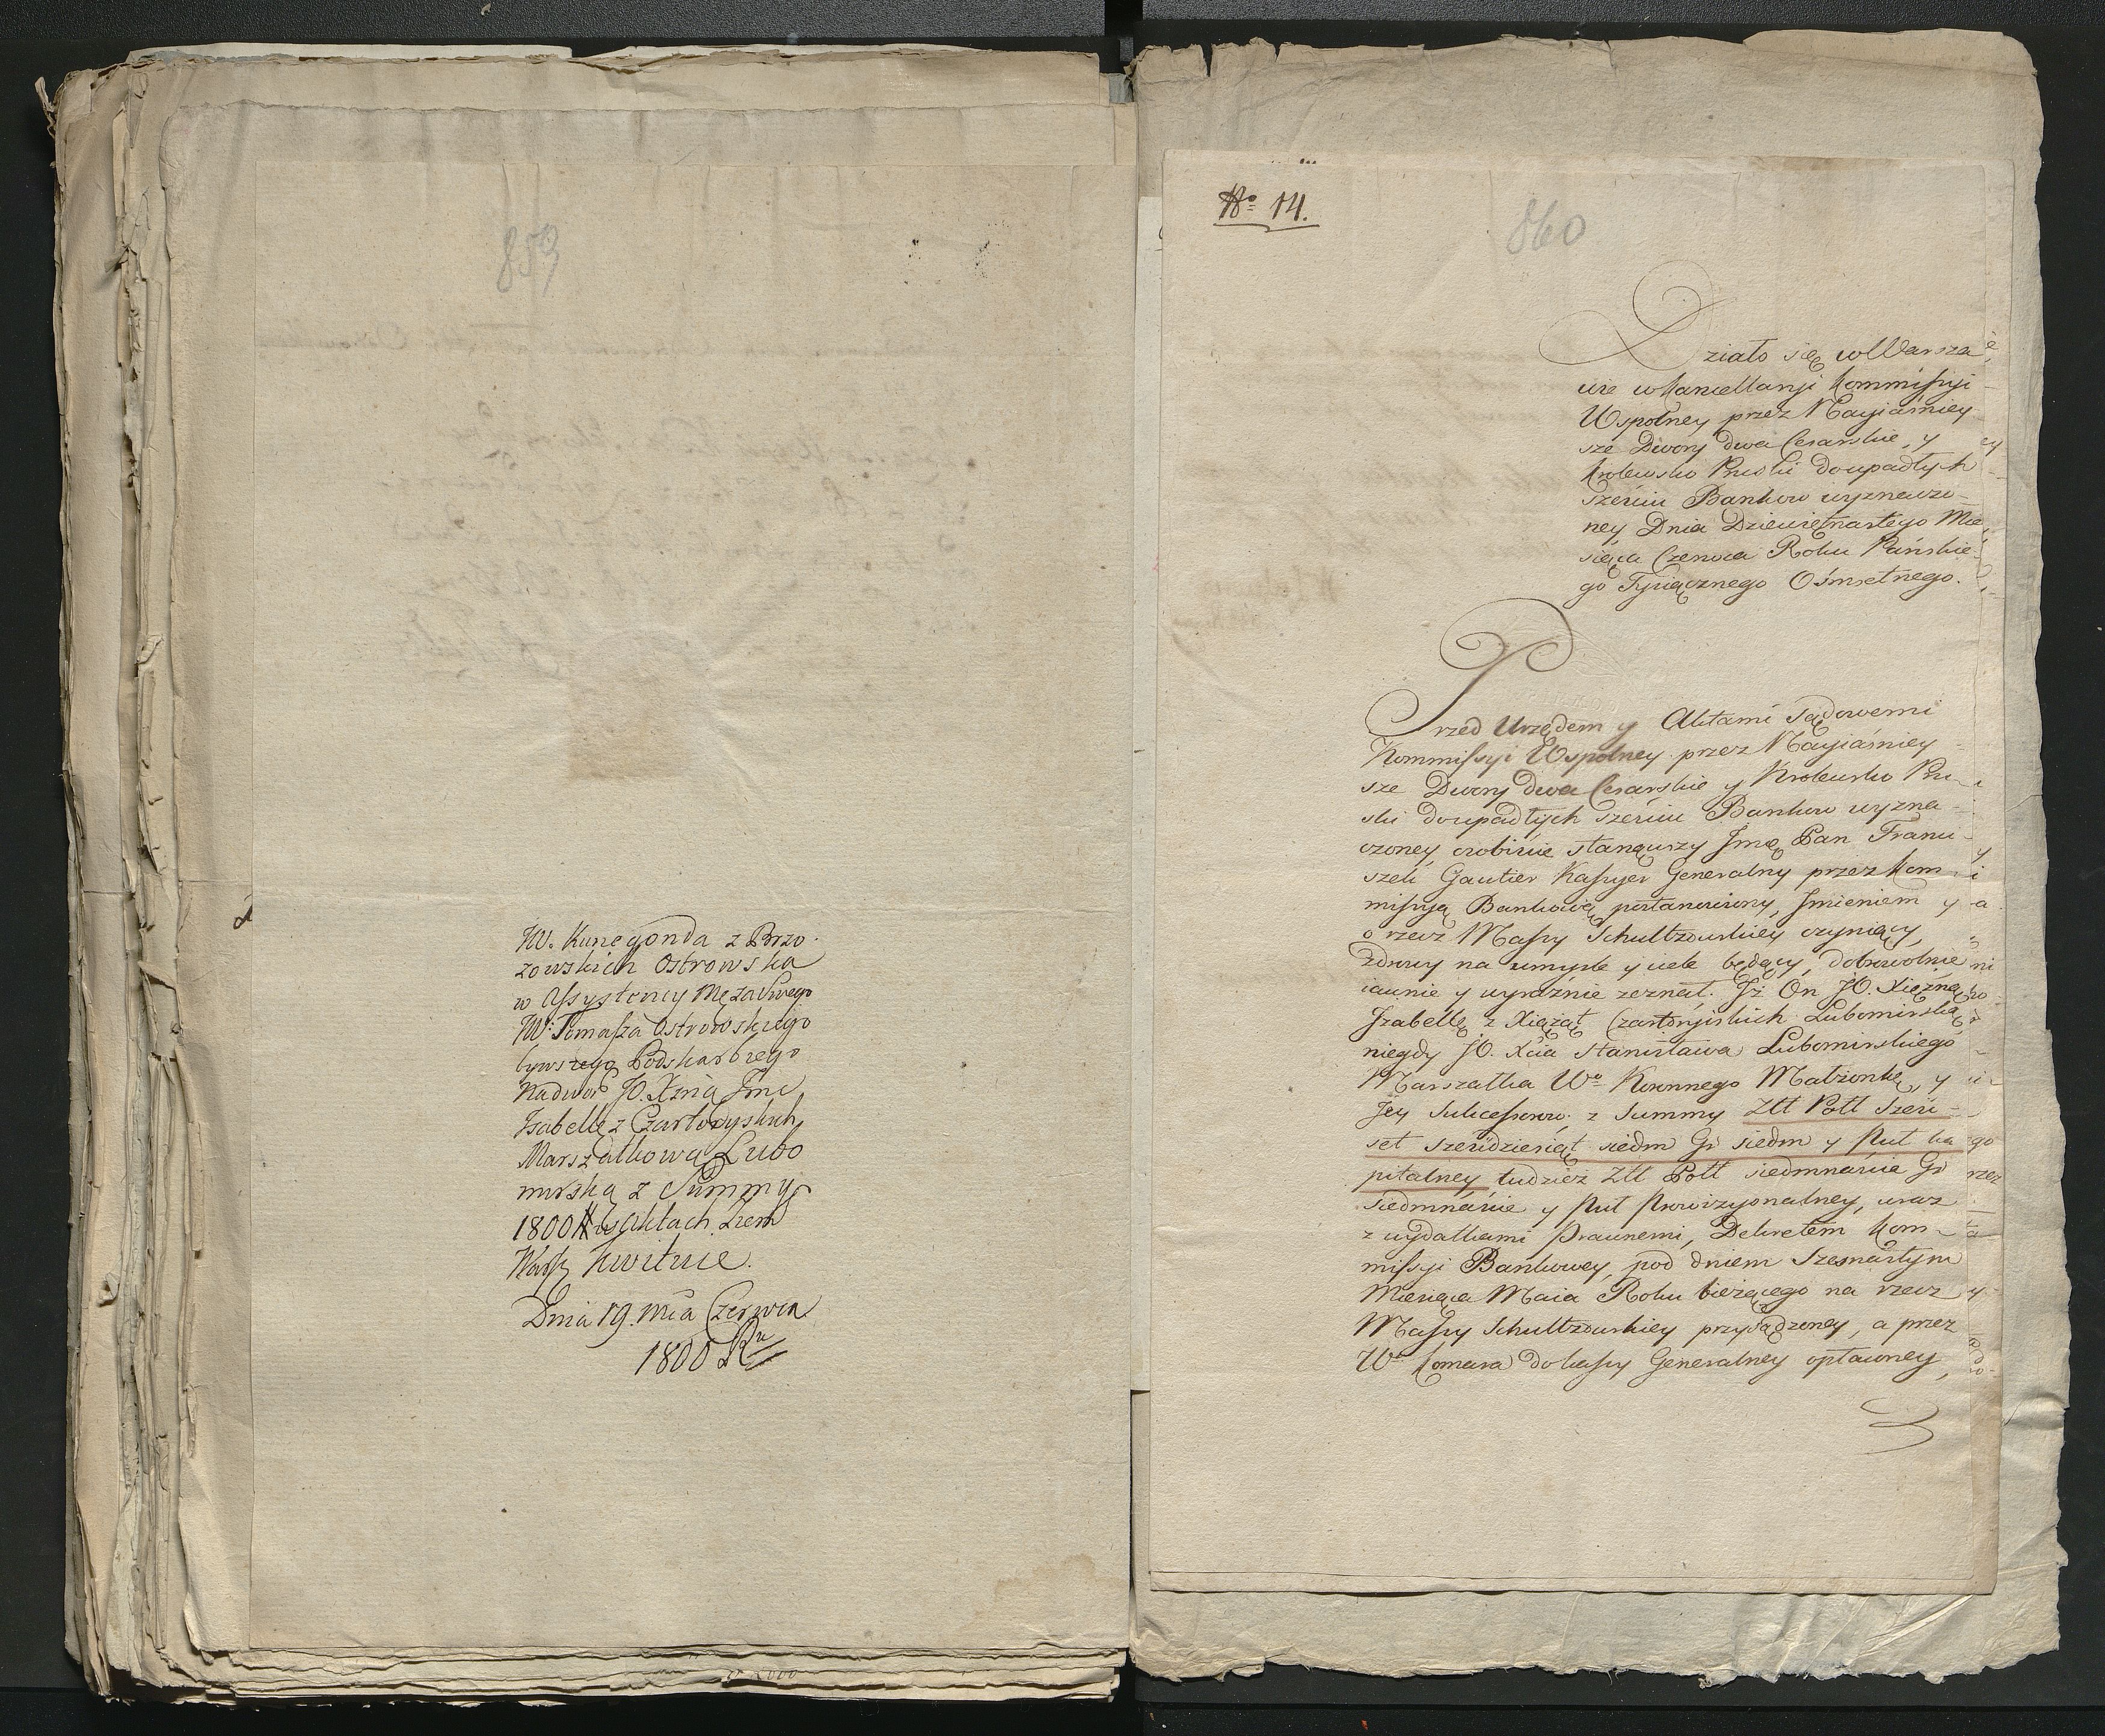 859
W. Kunegonda z Brzo-
zowskich Ostrowska
w Assystency Męza Swego
W: Tomasza Ostrowskiego
bywszego Podskarbiego
Nadwor JO. Xżną Jmć
Isabellę z Czartoryskich
Marszałkową Lubo
mirską z Summy
1800 # w Aktach Ziem
Warsz Kwituie.
Dnia 19. Mca Czerwca
1800 Ru
No 14.
860
Działo się w Warsza
wie w Kancellaryi Kommissyi
Wspolney przez Nayiaśniey
sze Dwory dwa Cesarskie, y
Krolewsko Pruski do upadłych
sześciu Bankow wyznaczo-
ney Dnia Dziewiętnastego Mie
siąca Czerwca Roku Pańskie-
go Tysiącznego Osmsetnego.
Przed Urzędem y Aktami Sądowemi
Kommissyi Wspolney przez Nayiaśniey
sze Dwory dwa Cesarskie y Krolewsko Pru
ski do upadłych sześciu Bankow wyzna-
czoney, osobiście stanąwszy Jmć Pan Franci-
szek Gautier Kassyer Generalny przez Kom-
missyą Bankową postanowiony, Imieniem y
o rzecz Massy Schultzowskiey czyniący,
zdrowy na umyśle y ciele będący, dobrowolnie
iawnie y wyraźnie zeznał. Iż On JO. Xiężnę
Izabellę z Xiążąt Czartoryiskich Lubomirską
niegdy JO. Xcia Stanisława Lubomirskiego
Marszałka Wo Koronnego Małżonkę, y
Jey Sukcessorow z Summy Złł Poll Sześć-
set sześćdziesiąt siedm Gr siedm y Puł ka
pitalney tudzież Złł Poll siedmnaście Gr
siedmnaście y Puł Prowizyonalney, wraz
z wydatkami Prawnemi, Dekretem Kom-
missyi Bankowey, pod dniem Szesnastym
Miesiąca Maia Roku bieżącego na rzecz
Massy Schultzowskiey przysądzoney, a przez
Wo Komara do kassy Generalney opłaconey,